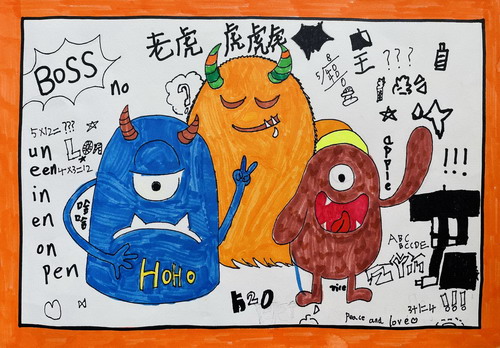 BOSS
no
老虎
虎虎虎
王
???
5×12= ???
4×3=12
un
een
in
en
on
pen
哈哈
?
HoHo
apple
!!!
ABC
BCCDE
h2O
rice
3+1=4 !!!
peace and love